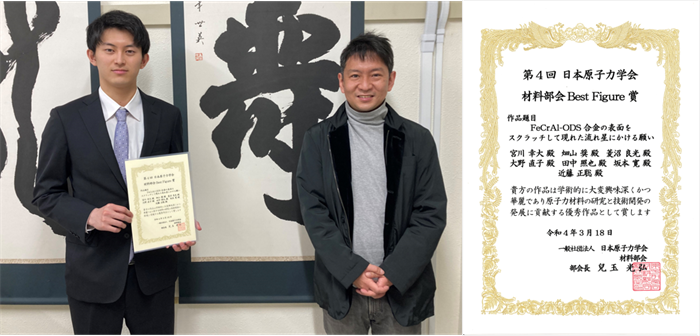 第４回 日本原子力学会
材料部会 Best Figure 賞
作品題目
FeCrAl-ODS 合金の表面を
スクラッチして現れた流れ星にかける願い
宮川 幸大 殿 畑山 奨 殿 菱沼 良光 殿
大野 直子 殿 田中 照也 殿 坂本 寛 殿
近藤 正聡 殿
貴方の作品は学術的に大変興味深くかつ
華麗であり原子力材料の研究と技術開発の
発展に貢献する優秀作品として賞します
令和４年３月18日
一般社団法人 日本原子力学会
材料部会
部会長 兒玉 光弘